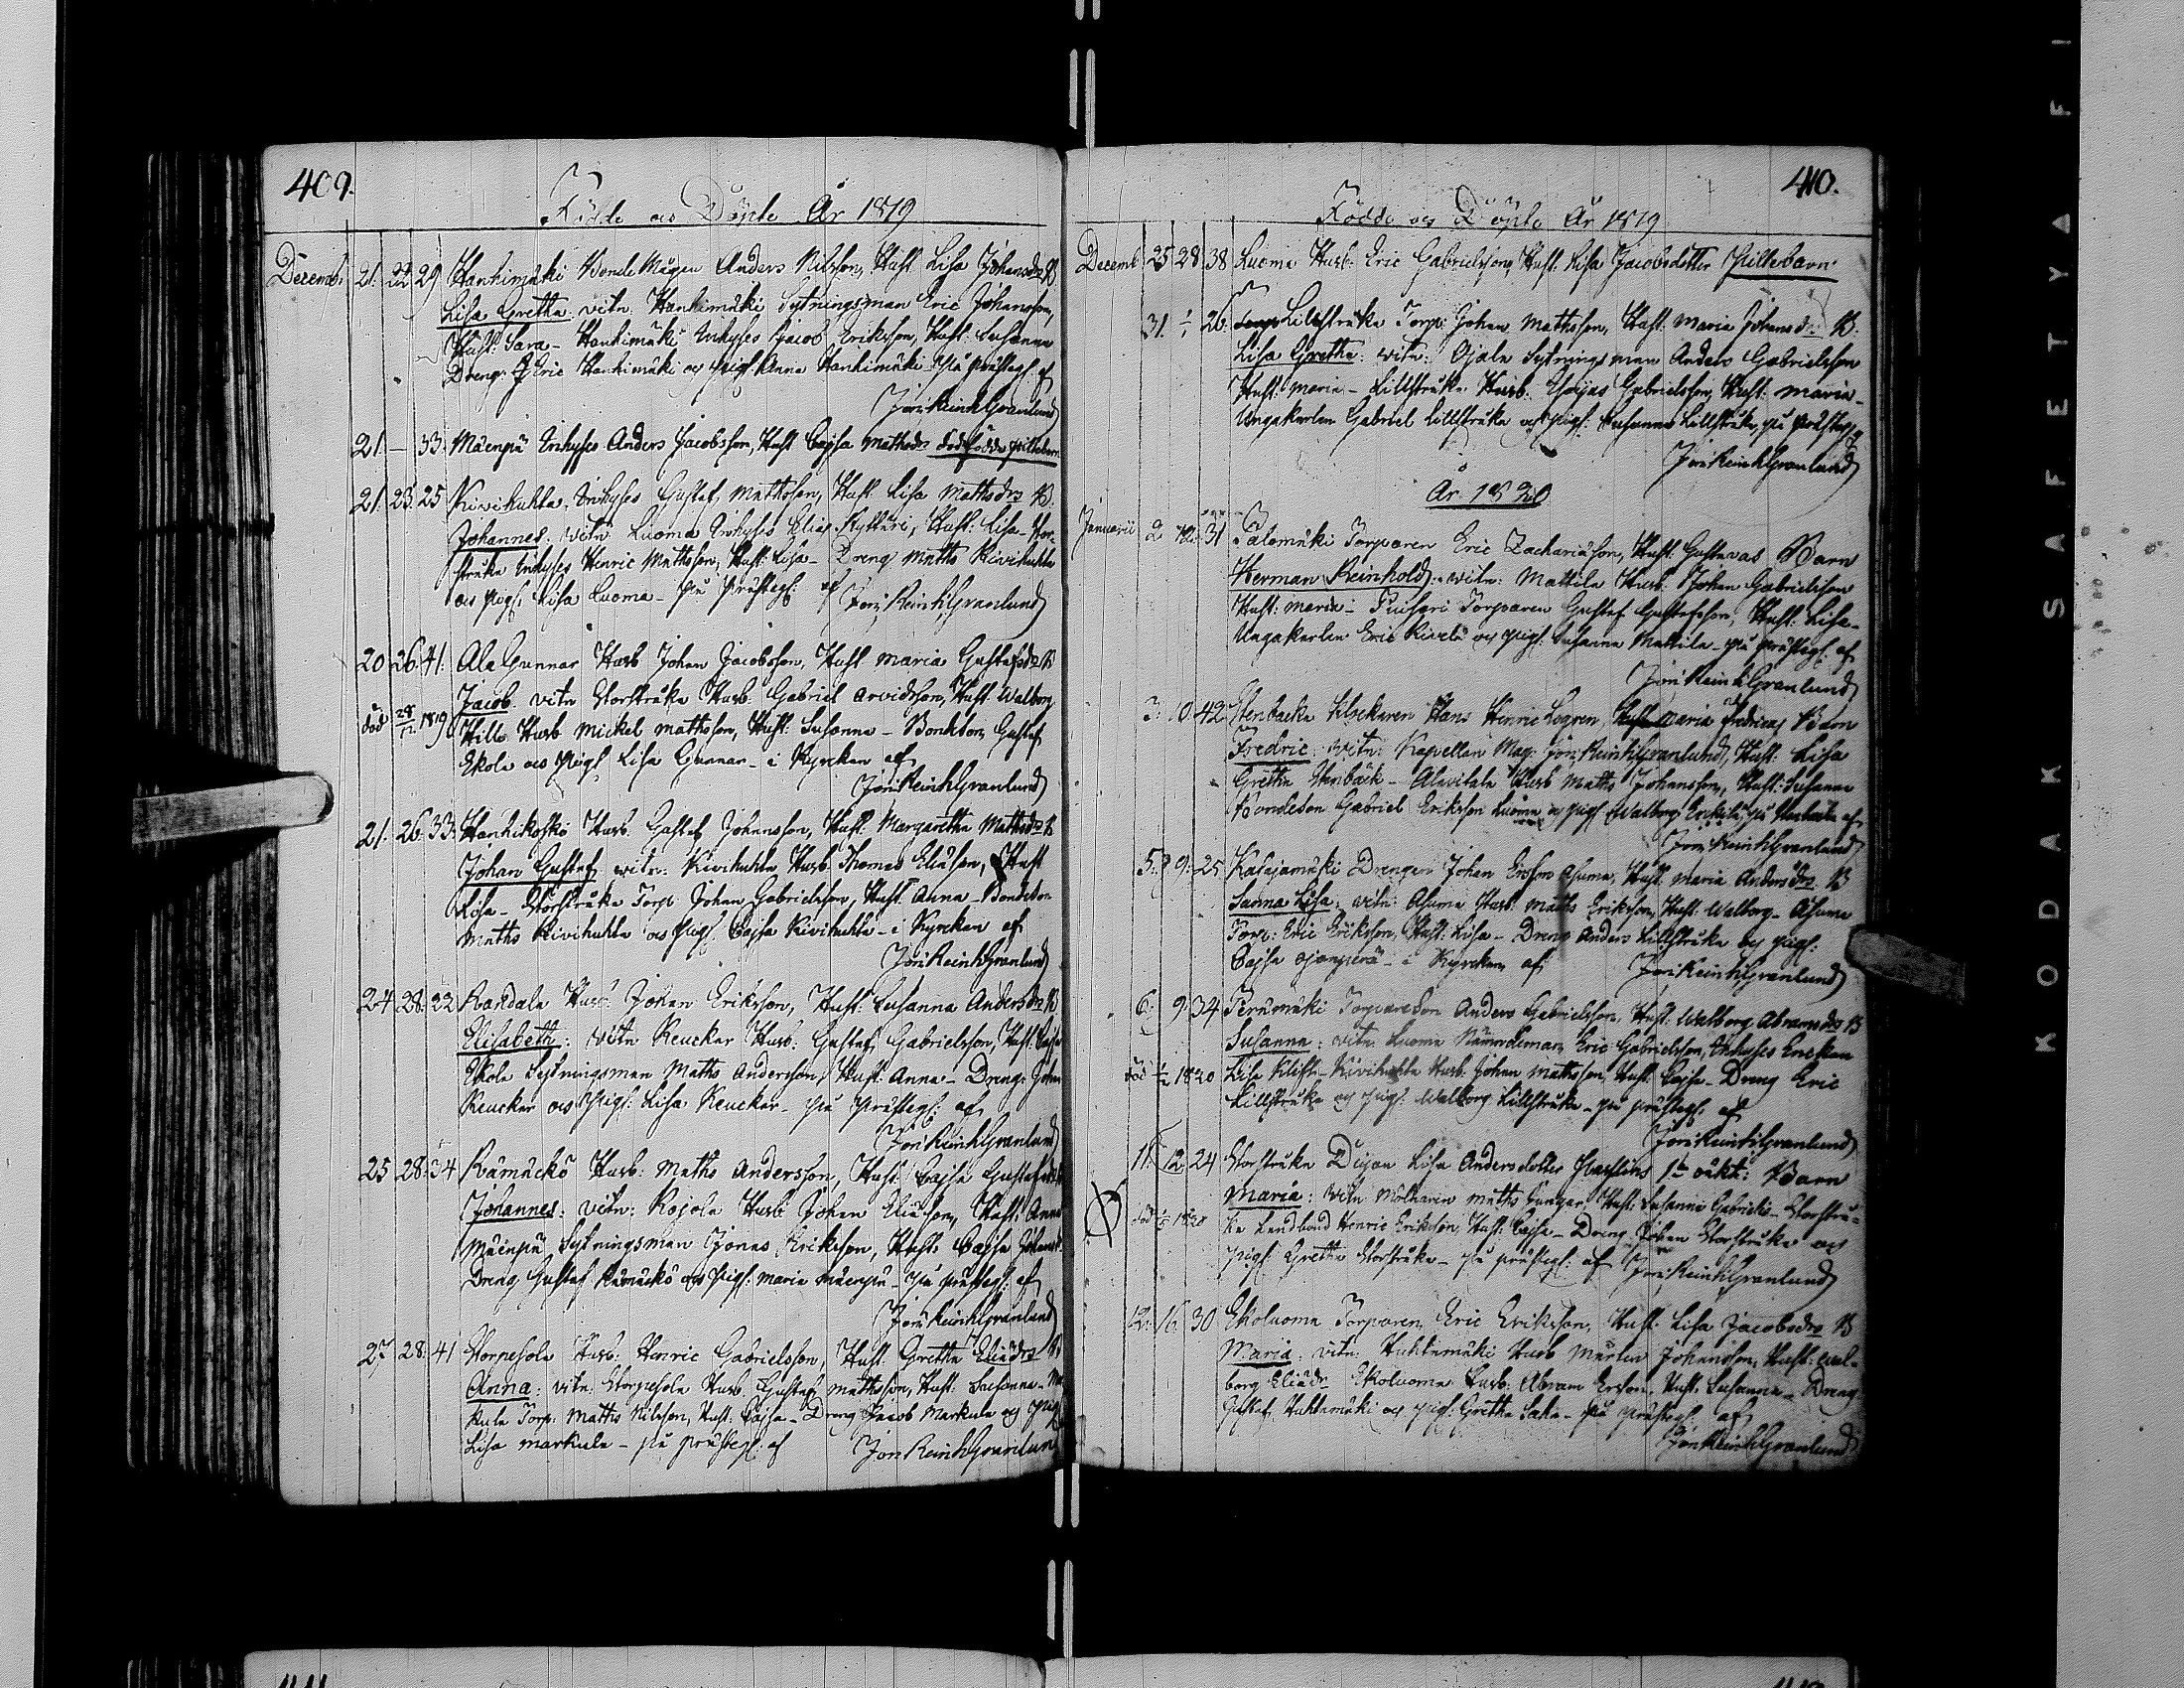 409.
Födde och Döpte År 1819
Decemb: 21. 22 29 Hanhimäki Bonde Mågen Anders Nilsson, Hust. Lisa Johansdr B.
Lisa Gretha. vitn: Hanhimäki Sytningsman Eric Johansson,
Hust: Sara - Hanhimäki Inhyses Jacob Eriksson, Hust: Susanna
Dreng: Eric Hanhimäki och Pig. Anna Hanhimäki på prästeg: af
Jon: Reinh Granlund
21. — 33. Mäenpä Inhyses Anders Jacobsson, Hust Cajsa Mathsdr dödfödde piltebarn
21. 23. 25 Kivihuhta Inhyses Gustaf Mathsson, Hust. Lisa Mathsdrs B.
Johannes. vitn Luoma Inhyses Elias Kyttäri, Hust: Lisa - Stor-
stråka Inhyses Henric Mathsson, Hust: Lisa - Dreng Maths Kivihuhta
och Pig: Lisa Luoma - på Prästeg: af Jon: Reinh Granlund
20 26. 41. Ala Gunnar Husb Johan Jacobsson, Hust Maria Gustafsdr B
Jacob. vitn Storstråka Husb. Gabriel Arvidsson, Hust. Walborg
död 28/12 1819 Hille Husb Mickel Mathsson, Hust: Susanna - Bondeson Gustaf
Skola och Pig: Lisa Gunnar - i Kyrckan af
Jon: Reinh Granlund
21. 26. 33. Hanhikoski Husb. Gustaf Johansson, Hust: Margaretha Mathsdr B
Johan Gustaf vitn: Kivihuhta Husb. Thomas Eliasson, Hust
Lisa - Storstråka Torp Johan Gabrielsson, Hust Anna - Bondeson
Maths Kivihuhta och Pig: Cajsa Kivihuhta - i Kyrckan af
Jon: Reinh Granlund
24 28. 22 Randala Husb: Johan Eriksson, Hust: Susanna Andersdr B
Elisabeth: vitn Reucker Husb: Gustaf Gabrielsson, Hust: Cajsa
Skola Sytningsman Maths Andersson, Hust: Anna - Dreng: Johan
Reucker och Pig: Lisa Reucker - på Prästeg: af
Jon: Reinh Granlund
25 28. 34 Rämäckö Husb: Maths Andersson, Hust Cajsa Gustafsdr
Johannes: vitn: Kojola Husb Johan Eliasson, Hust: Anna
Mäenpä Sytningsman Jonas Eriksson, Hust: Cajsa
Dreng Gustaf Rämäckö och Pig: Maria Mäenpä - på prästeg: af
Jon: Reinh Granlund
27 28. 41 Husb: Henric Gabrielsson, Hust. Gretha Eliædr B.
Anna: vitn: Husb. Gustaf Mathsson, Hust: Susanna - Mar-
kula Torp. Maths Nilsson, Hust: Cajsa - Dreng Jacob Markula och Pig
Lisa Markula - på prästeg: af Jon Reinh Granlund
410.
Födde och Döpte År 1819
Decemb 25 28 38 Luoma Husb: Eric Gabrielsson, Hust: Lisa Jacobsdotter Piltebarn
31. 1/1 26. Lillstråka Torp: Johan Mathsson, Hust: Maria Johansdr: B.
Lisa Gretha: vitn: Ojala Sytningsman Anders Gabrielsson
Hust: Maria - Lillstråka Husb. Esaijas Gabrielsson, Hust: Maria -
Ungakarlen Gabriel Lillstråka och Pig: Susanna Lillstråka, på Prästeg:
Jon: Reinh Granlund
År 1820
Januarii 2 31 Palomäki Torparen Eric Zachariæson, Hust. Gustavas Barn
Herman Reinhold. vitn: Mattila Husb. Johan Gabrielsson
Hust: Maria - Torparen Gustaf Gustafsson, Hust: Lisa -
Ungakarlen Eric och Pig: Susanna Mattila - på prästeg: af
Jon: Reinh Granlund
3. 10. 42 Stenbacka Klockaren Hans Henric Hust Maria Fredricas Barn
Fredric. vitn: Kapellan Mag: Jon: Reinh Granlund, Hust: Lisa
Gretha Stenbäck - Alavitala Husb Maths Johansson, Hust: Susanna
Bondeson Gabriel Eriksson Luoma och Pig: Walborg på af
Jon: Reinh Granlund
5. 9. 25 Katajamäki Drengen Johan Ersson Asuma, Hust. Maria Andersdr B
Sanna Lisa: vitn: Asuma Husb. Maths Eriksson, Hust: Walborg - Asuma
Torp: Eric Eriksson, Hust: Lisa - Dreng Anders Lillstråka och Pig:
Cajsa Ojanperä - i Kyrckan af Jon: Reinh Granlund
6. 9. 34 Perämäki Torpareson Anders Gabrielsson, Hust: Walborg Abramsdr B
Susanna: vitn: Luoma Nämndeman Eric Gabrielsson, Inhyses Enckan
död 1820 Lisa - Kivihuhta Husb. Johan Mathsson, Hust Cajsa - Dreng Eric
Lillstråka och Pig: Walborg Lillstråka - på prästeg: af
Jon: Reinh Granlund
11. 12. 24 Storstråka Pigan Lisa Andersdotter 1sta oäkta: Barn
Maria: vitn Mölnaren Maths Hust: Susanna - Storstrå-
död 1820 ka Landbond Henric Eriksson, Hust: Cajsa - Dreng Johan Storstråka och
Pig: Gretha Storstråka - på prästeg: af Jon: Reinh Granlund
12. 16. 30 Ekoluoma Torparen Eric Eriksson, Hust. Lisa Jacobsdrs B
Maria. vitn: Huhtamäki Husb Mårten Johansson, Hust: Wal-
borg Eliædr Ekoluoma Husb. Abram Ersson, Hust. Susanna - Dreng
Gustaf Huhtamäki och Pig: Gretha - på prästeg: af
Jon Reinh Granlund
KODAK SAFETY A FI